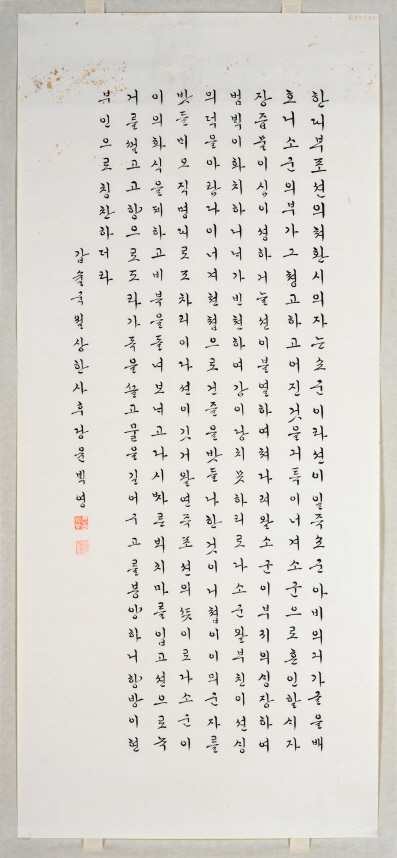 한대부포션의쳐환시의자는쇼운이라션이일죽쇼운아비의게가글을배
호니소운의부가그쳥고하고어진것을거특이너겨소군으로혼인할시자
장즙물이심이셩하거늘션이불열하여쳐다려왈소군이부귀의싱장하여
범빅이화치하니내가빈쳔하여감이당치못하리로다소운왈부친이션싱
의덕을아람다이너겨쳔쳡으로건즐을밧들나한것이니쳡이이믜운자를
밧들매오직명대로조차리이다션이깃거왈연죽포션의뜻이로다소운이
이의화식을폐하고비복을돌녀보내고다시짜른뵈치마를입고션으로녹
거를쓸고고향으로도라가독을쓸고물을길어구고를봉양하니향방이현
부인으로칭찬하더라
갑술국월상한사후당윤백영